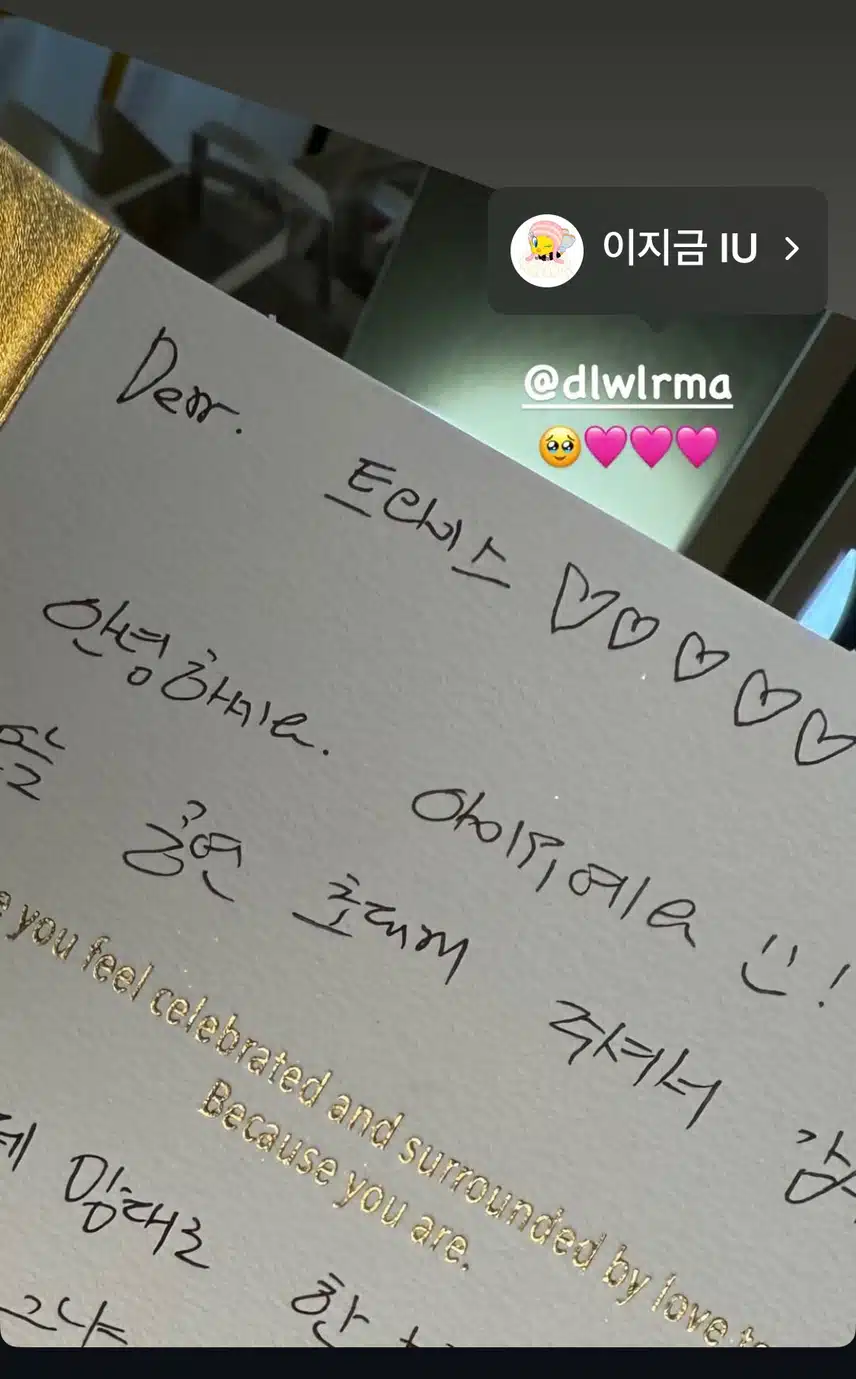 이지금 IU
@dlwlrma
🥹🩷🩷🩷
Dear.
트래비스 ♡♡♡♡♡
안녕하세요.
아이유예요 !
공연 초대해 주셔서
you feel celebrated and surrounded by love
Because you are.
맘대로
그냥